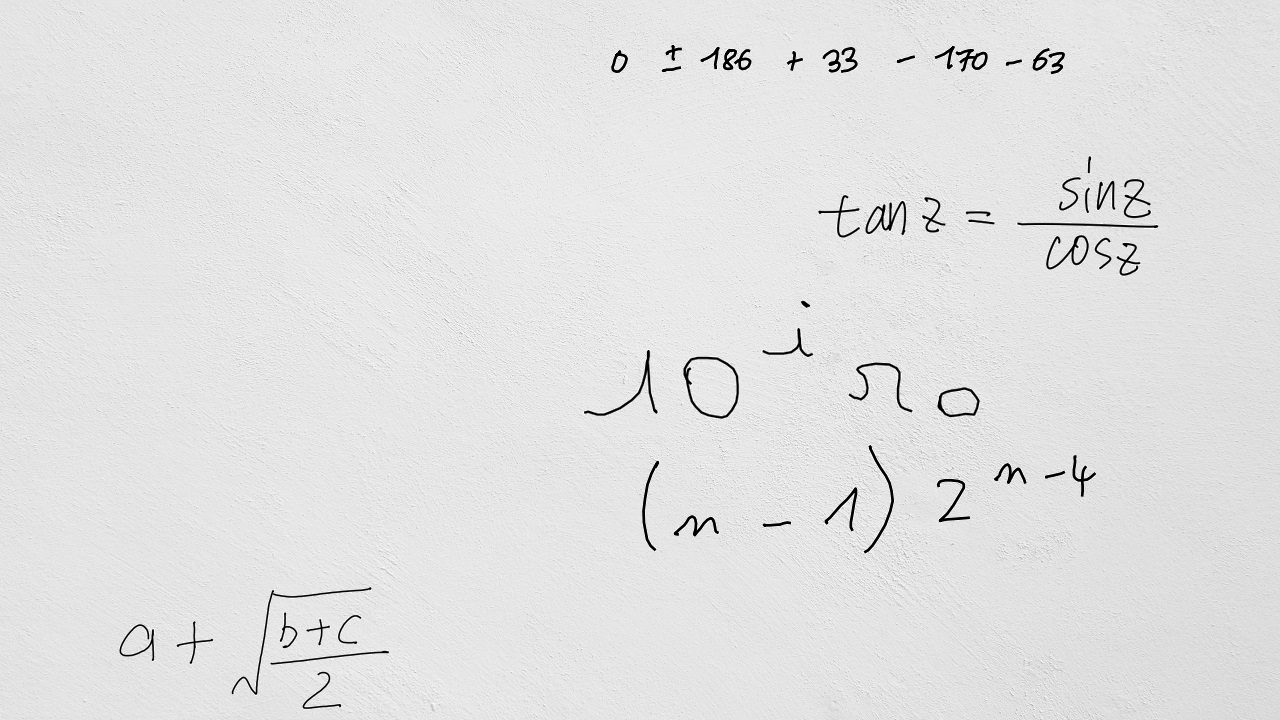 0 ± 186 + 33 - 170 - 63
tan z = \frac{sin z}{cos z}
10^i r_0
(n - 1) 2^{n-4}
a + \sqrt{\frac{b+c}{2}}